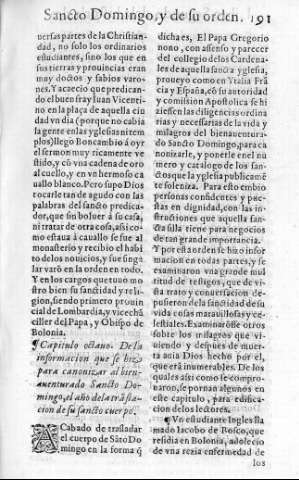 Sancto Domingo, y de su orden. 191
uersas partes de la Christian-
dad, no solo los ordinarios
estudiantes, sino los que en
sus tierras y prouincias eran
muy dodos y sabios varo-
nes. Y acaecio que predican-
do el buen fray Iuan Vicenti-
no en la plaça de aquella ciu
dad vn dia (porque no cabia
la gente en las yglesias ni tem
plos) llego Boncambio á oyr
el sermon muy ricamente ve
stido, y cõ vna cadena de oro
al cuello, y en vn hermoso ca
uallo blanco. Pero supo Dios
tocarle tan de agudo con las
palabras del sancto predica-
dor, que sin boluer à su casa,
ni tratar de otra cosa, assi co-
mo estaua à cauallo se fue al
monasterio y recibio el habi
to de los nouicios, y fue singu
lar varõ en la orden en todo.
Y en los cargos que tuuo mo
stro bien su sanctidad y reli-
gion, siendo primero prouin
cial de Lombardia, y vicechã
ciller del Papa, y Obispo de
Bolonia.
¶ Capitulo octauo. De la
informacion que se hizo
para canonizar al bien-
auenturado Sancto Do-
mingo, el año de la trãsla-
cion de su sancto cuerpo.
ACabado de trasladar
el cuerpo de Sãto Do-
mingo en la forma q̃
dicha es, El Papa Gregorio
nono, con assenso y parecer
del collegio de los Cardena-
les de aquella sancta yglesia,
proueyo como en Ytalia Frã
cia y España, cõ su autoridad
y comission Apostolica se hi
ziessen las diligencias ordina
rias y necessarias de la vida y
milagros del bienauentura-
do Sancto Domingo, para ca
nonizarle, y ponerle en el nu
mero y catalogo de los sanc-
tos que la yglesia publicamẽ
te soleniza. Para esto embio
personas confidentes y pue-
stas en dignidad, con las in-
structiones que aquella san-
cta silla tiene para negocios
de tan grande importancia.
Y por esta orden se hizo infor
macion en todas partes, y se
examinaron vna grande mul
titud de testigos, que de vi-
sta trato y conuersacion de-
pusieron de la sanctidad de su
vida cosas marauillosas y ce-
lestiales. Examinarõse otros
sobre los milagros que vi-
uiendo y despues de muer-
to auia Dios hecho por el,
que erã inumerables. De los
quales assi como se compro-
uaron, se pornan algunos en
este capitulo, para edifica-
cion de los lectores.
¶ Vn estudiante Ingles lla-
mado Iacobo de Bosco, que
residia en Bolonia, adolecio
de vna rezia enfermedad de
los